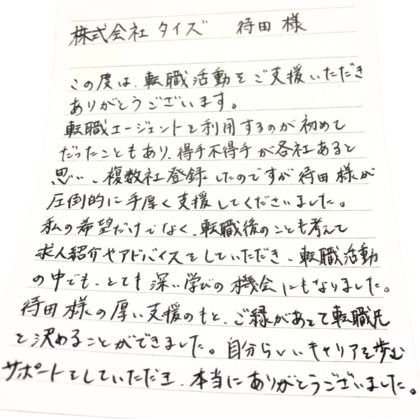 株式会社タイズ 待田様
この度は、転職活動をご支援いただき
ありがとうございます。
転職エージェントを利用するのが初めて
だったこともあり、得手不得手が各社あると
思い、複数社登録したのですが待田様が
圧倒的に手厚く支援してくださいました。
私の希望だけでなく、転職後のことも考えて
求人紹介やアドバイスをしていただき、転職活動
の中でも、とても深い学びの機会にもなりました。
待田様の厚い支援のもと、ご縁があって転職先
を決めることができました。自分らしいキャリアを歩む
サポートをしていただき、本当にありがとうございました。